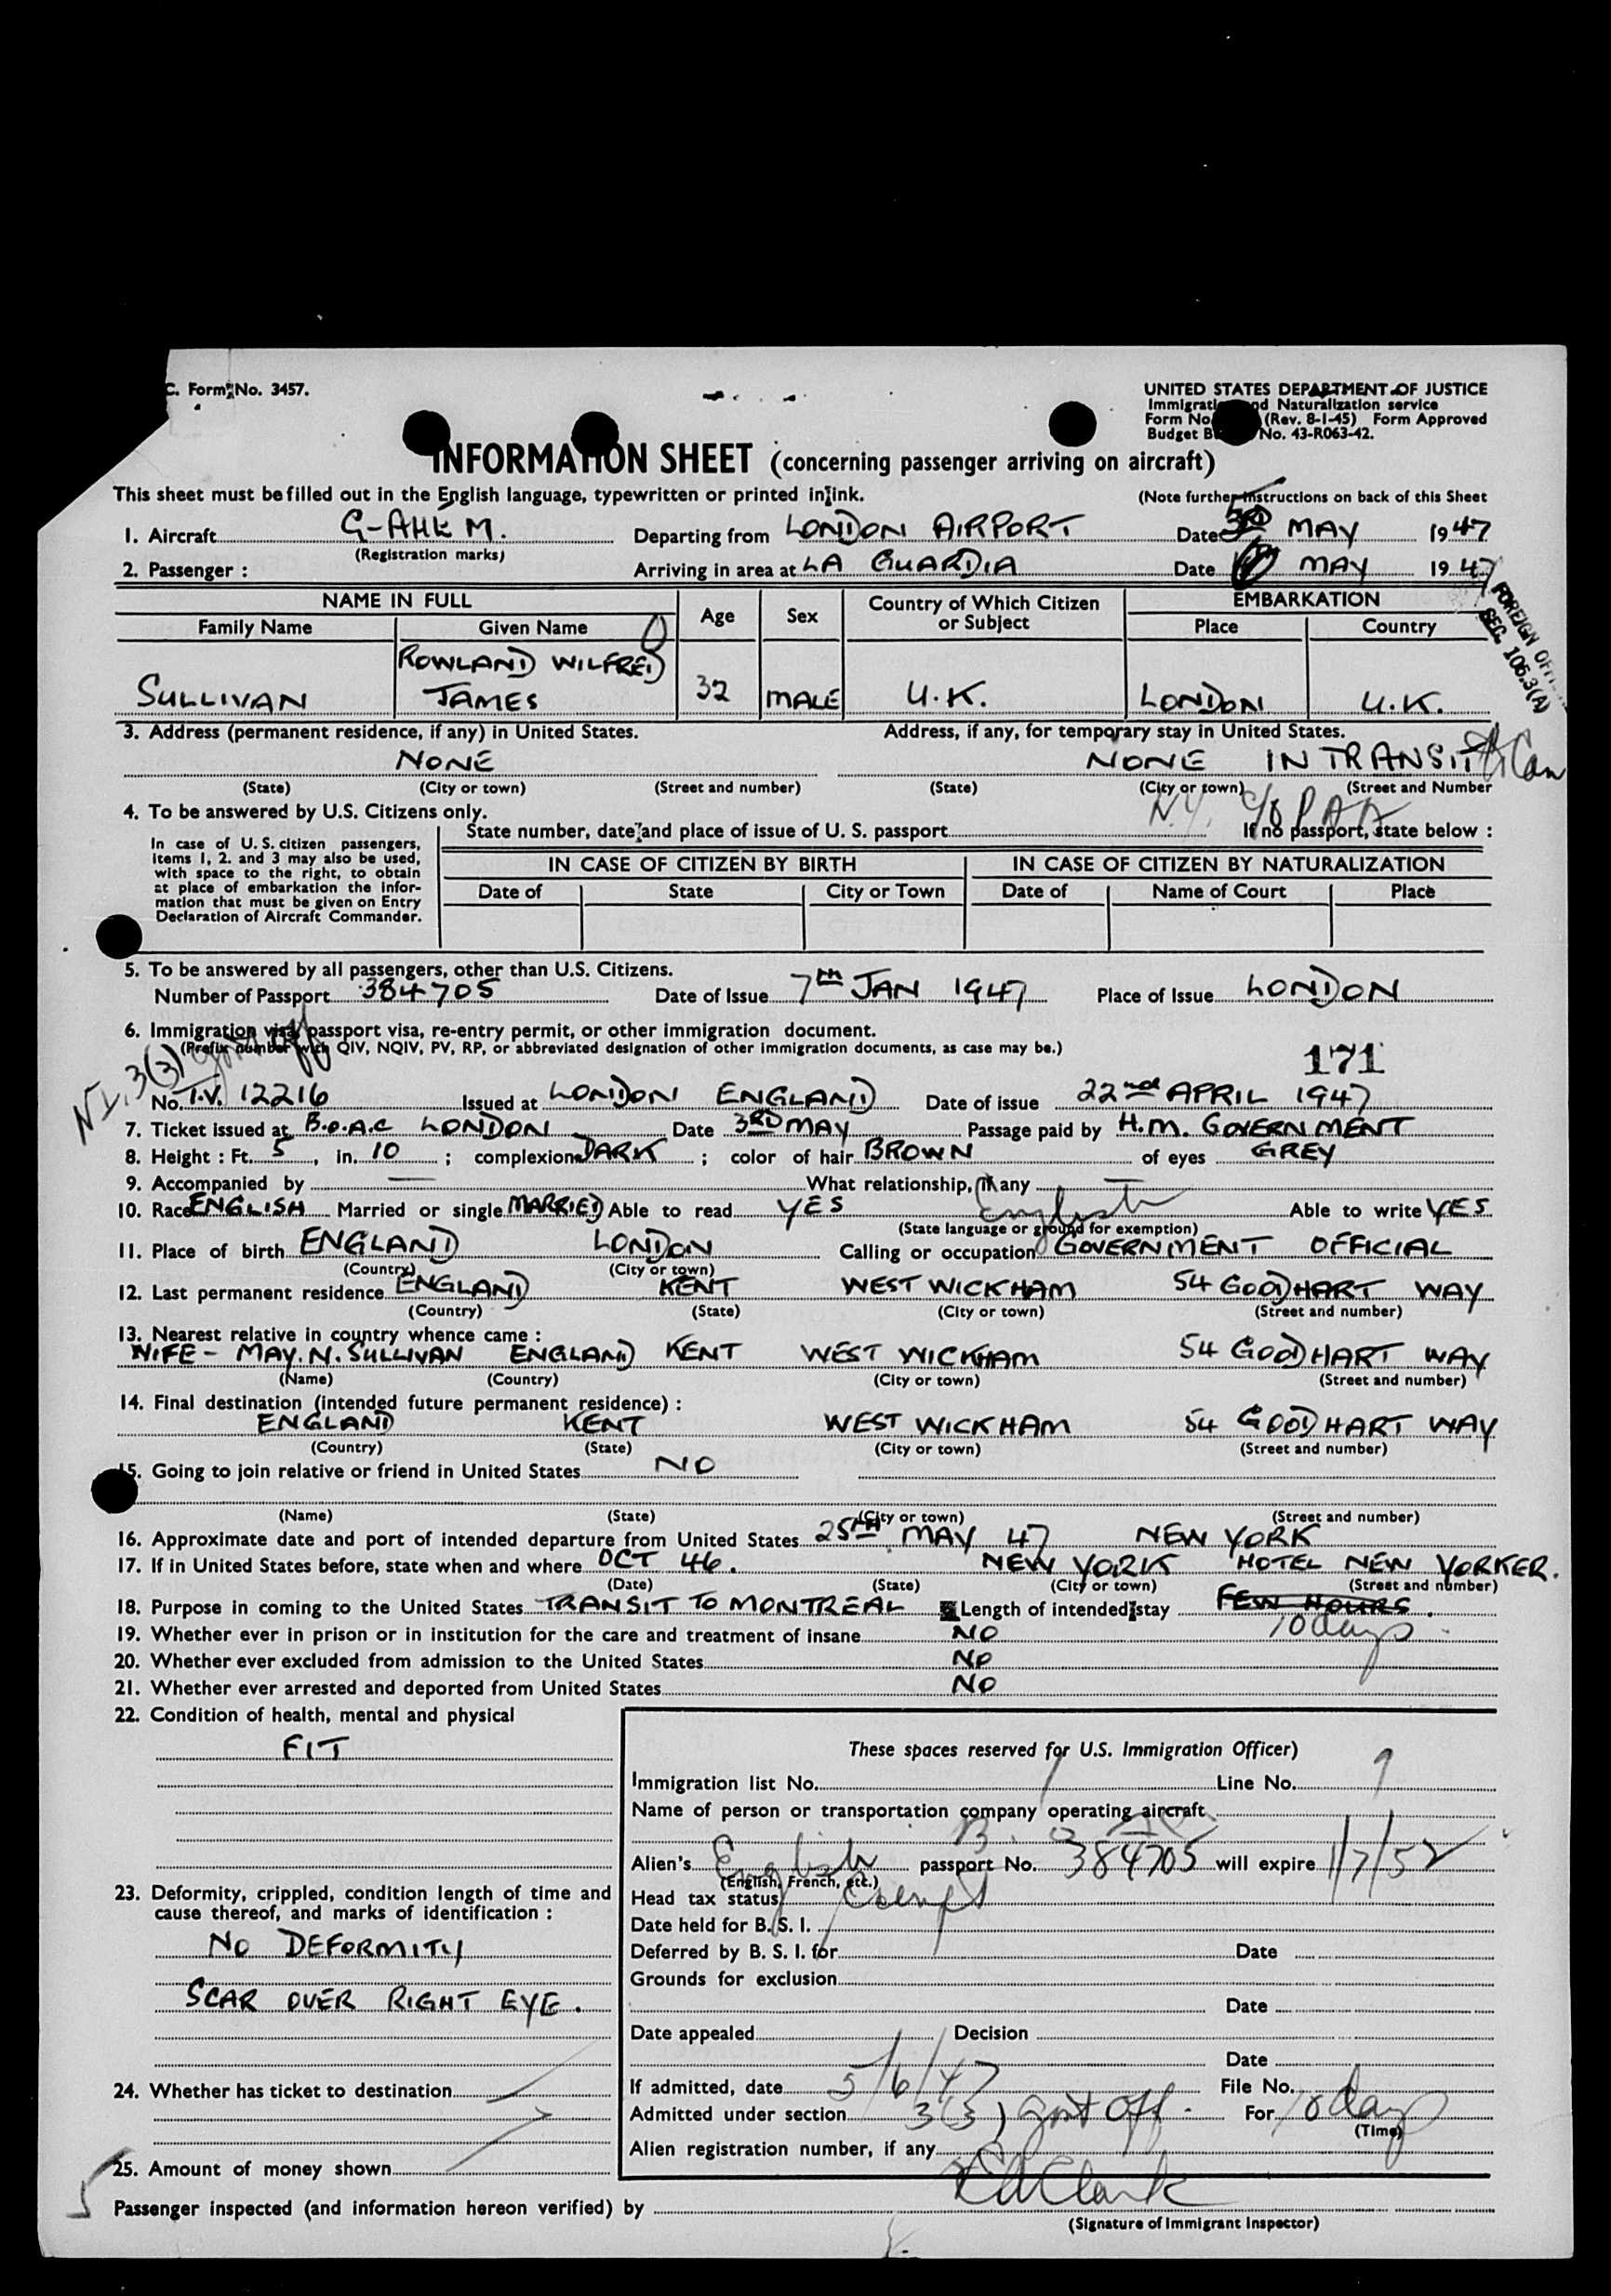 C. Form No. 3457.
UNITED STATES DEPARTMENT OF JUSTICE
Immigration and Naturalization service
Form No. (Rev. 8-1-45) Form Approved
Budget B No. 43-R063-42.
INFORMATION SHEET (concerning passenger arriving on aircraft)
This sheet must be filled out in the English language, typewritten or printed in ink. (Note further instructions on back of this Sheet
1. Aircraft G-AHEM. Departing from LONDON AIRPORT Date MAY 1947
(Registration marks)
2. Passenger : Arriving in area at LA GUARDIA Date MAY 1947
FOREIGN
SEC. 106.3(A)
NAME IN FULL Age Sex Country of Which Citizen or Subject EMBARKATION
Family Name Given Name Place Country
ROWLAND WILFRED
SULLIVAN JAMES 32 MALE U.K. LONDON U.K.
3. Address (permanent residence, if any) in United States. Address, if any, for temporary stay in United States.
NONE NONE IN TRANSIT
(State) (City or town) (Street and number) (State) (City or town) (Street and Number
N.Y. c/o PAA
4. To be answered by U.S. Citizens only.
State number, date and place of issue of U. S. passport If no passport, state below :
In case of U. S. citizen passengers,
items 1, 2. and 3 may also be used,
with space to the right, to obtain
at place of embarkation the infor-
mation that must be given on Entry
Declaration of Aircraft Commander.
IN CASE OF CITIZEN BY BIRTH IN CASE OF CITIZEN BY NATURALIZATION
Date of State City or Town Date of Name of Court Place
5. To be answered by all passengers, other than U.S. Citizens.
Number of Passport 384705 Date of Issue 7TH JAN 1947 Place of Issue LONDON
6. Immigration visa, passport visa, re-entry permit, or other immigration document.
(Prefix number with QIV, NQIV, PV, RP, or abbreviated designation of other immigration documents, as case may be.)
171
3(3) govt off
No. T.V. 12216 Issued at LONDON ENGLAND Date of issue 22nd APRIL 1947
7. Ticket issued at B.O.A.C LONDON Date 3RD MAY Passage paid by H.M. GOVERNMENT
8. Height : Ft. 5, in. 10 ; complexion DARK ; color of hair BROWN of eyes GREY
9. Accompanied by — What relationship, if any —
10. Race ENGLISH Married or single MARRIED Able to read YES English Able to write YES
(State language or ground for exemption)
11. Place of birth ENGLAND LONDON Calling or occupation GOVERNMENT OFFICIAL
(Country) (City or town)
12. Last permanent residence ENGLAND KENT WEST WICKHAM 54 GOODHART WAY
(Country) (State) (City or town) (Street and number)
13. Nearest relative in country whence came :
WIFE - MAY. N. SULLIVAN ENGLAND KENT WEST WICKHAM 54 GOODHART WAY
(Name) (Country) (City or town) (Street and number)
14. Final destination (intended future permanent residence) :
ENGLAND KENT WEST WICKHAM 54 GOODHART WAY
(Country) (State) (City or town) (Street and number)
15. Going to join relative or friend in United States NO
(Name) (State) (City or town) (Street and number)
16. Approximate date and port of intended departure from United States 25TH MAY 47 NEW YORK
17. If in United States before, state when and where OCT 46. NEW YORK HOTEL NEW YORKER.
(Date) (State) (City or town) (Street and number)
18. Purpose in coming to the United States TRANSIT TO MONTREAL Length of intended stay FEW HOURS.
10 days
19. Whether ever in prison or in institution for the care and treatment of insane NO
20. Whether ever excluded from admission to the United States NO
21. Whether ever arrested and deported from United States NO
22. Condition of health, mental and physical
FIT
These spaces reserved for U.S. Immigration Officer)
Immigration list No. 1 Line No. 9
Name of person or transportation company operating aircraft
Alien's English passport No. 384705 will expire 1/7/52
(English, French, etc.)
Head tax status Exempt
Date held for B. S. I.
Deferred by B. S. I. for Date
Grounds for exclusion
Date
Date appealed Decision
Date
If admitted, date 5/6/47 File No.
Admitted under section 3(3) govt off. For 10 days
(Time)
Alien registration number, if any
23. Deformity, crippled, condition length of time and
cause thereof, and marks of identification :
NO DEFORMITY
SCAR OVER RIGHT EYE.
24. Whether has ticket to destination
25. Amount of money shown
Passenger inspected (and information hereon verified) by Clark
(Signature of Immigrant Inspector)